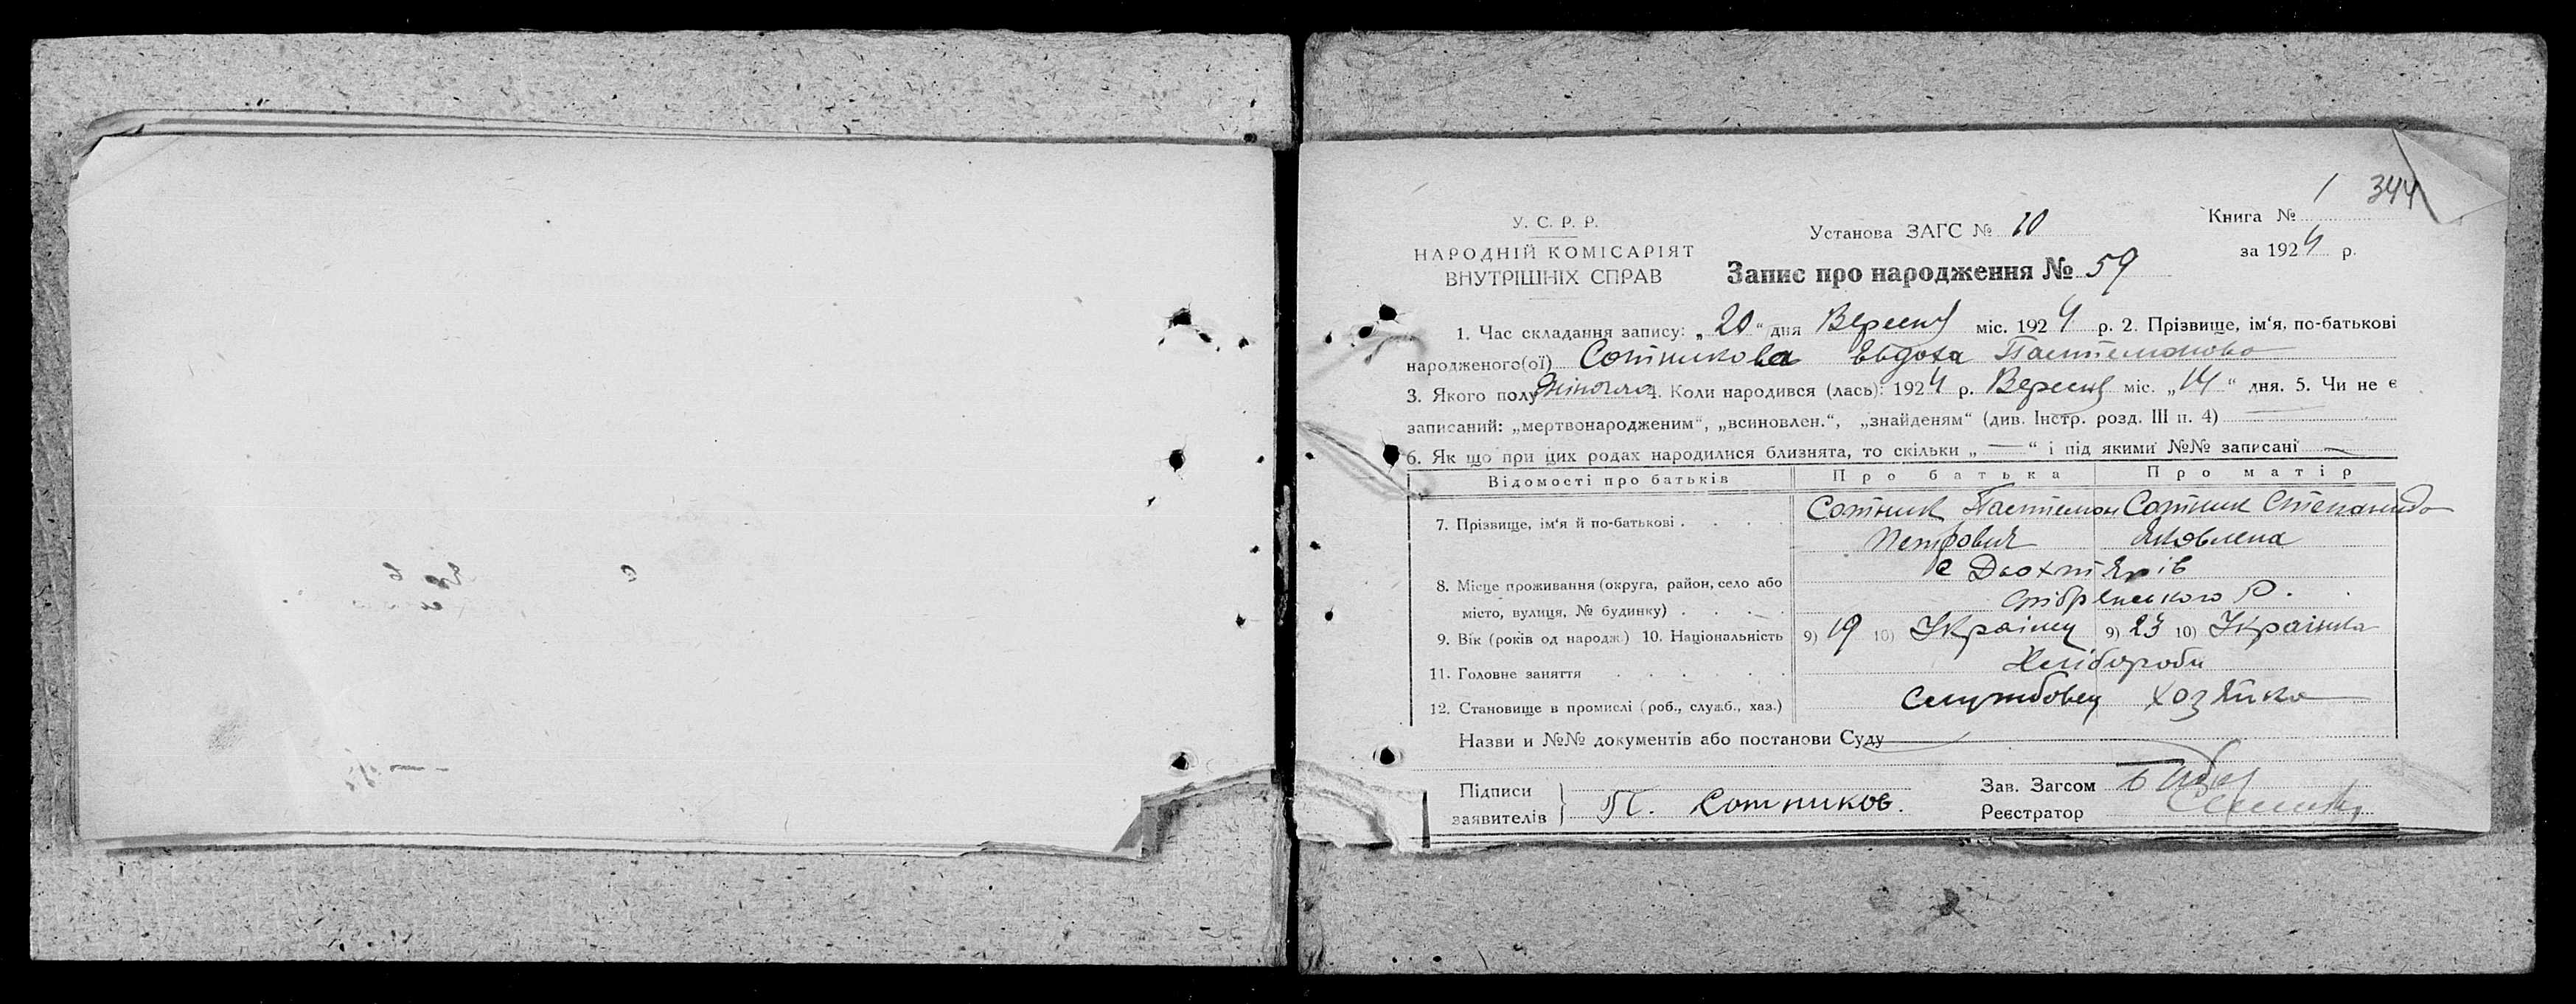 1 344
У. С. Р. Р.
Установа ЗАГС № 10
Книга №
НАРОДНІЙ КОМІСАРІЯТ
ВНУТРІШНІХ СПРАВ
за 1924 р.
Запис про народження № 59
1. Час складання запису: „20“ дня Вересня міс. 1924 р. 2. Прізвище, ім‘я, по-батькові
народженого(ої) Сотникова Евдоха Пантемонова
3. Якого полу Жіночла 4. Коли народився (лась): 1924 р. Вересня міс. „14“ дня. 5. Чи не є
записаний: „мертвонародженим“, „всиновлен.“, „знайденям“ (див. Інстр. розд. III п. 4)
6. Як що при цих родах народилися близнята, то скільки „—“ і під якими №№ записані —
Відомості про батьків Про батька Про матір
7. Прізвище, ім‘я й по-батькові . . . . Сотник Пантемон Сотник Степанида
Петрович Яковлена
8. Місце проживання (округа, район, село або с Дьохтярів
місто, вулиця, № будинку) . . . . Срібрянського Р.
9. Вік (років од народж.) 10. Національність 9) 19 10) Українец 9) 23 10) Українка
11. Головне заняття . . . . . Хлібороби
12. Становище в промислі (роб., служб., хаз.) Службовец хозяйка
Назви и №№ документів або постанови Суду
Підписи
заявителів П. Сотников.
Зав. Загсом
Реєстратор